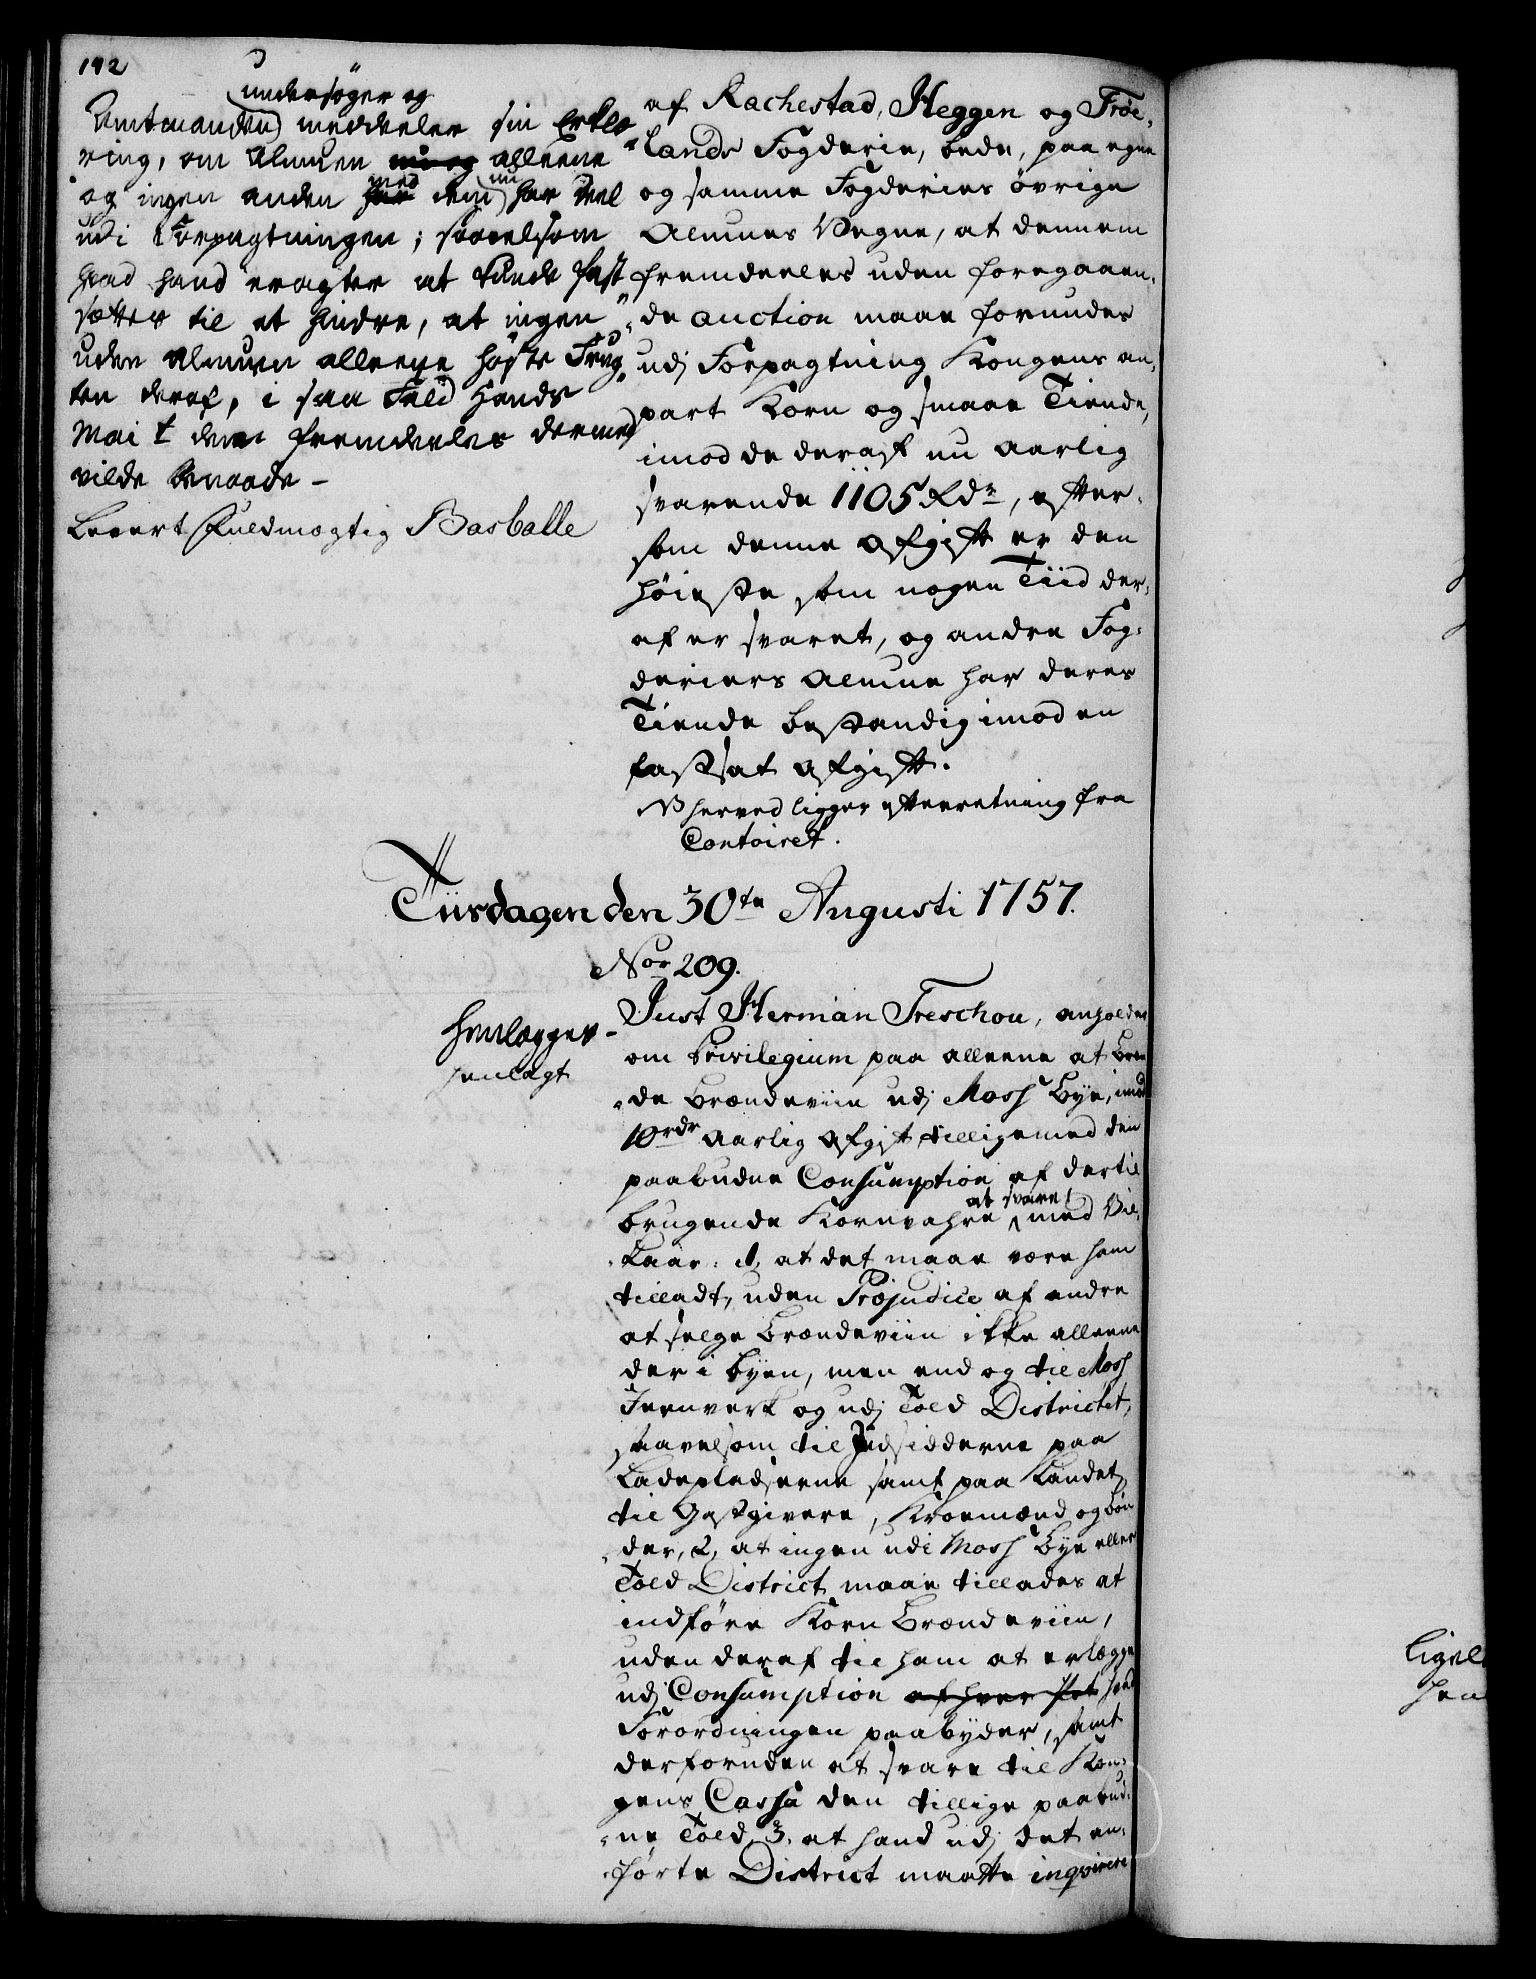 192
undersøger og
Amtmanden meddeler sin Erklæ-
ring, om Almuen allene
og ingen anden med dem nu har Deel
udi Forpagtningen; saavelsom
hvad hand eragter at kunde fast
sættes til at hindre, at ingen
uden Almuen alleene høste Frug-
ten deraf, i saa Fald Hands
Mai t dem fremdeeles dermed
vilde benaade -
Levert Fuldmægtig Basballe
af Rachestad, Heggen og Frøe-
lands Fogderie, bede, paa egne
og samme Fogderies øvrige
Almues Vegne, at dennem
fremdeeles uden foregaaen-
de auction maae forundes
udj Forpagtning Kongens an-
part Korn og smaae Tiende,
imod de deraf nu aarlig
svarende 1105 Rdr, efter-
som denne afgift er den
høieste som nogen Tiid der-
af er svaret, og andre Fog-
deriers Almue har deres
Tiende bestandig imod en
fastsat afgift.
NB herved ligger efterretning fra
Contoiret.
Tiirsdagen den 30te Augusti 1757.
Nor 209.
Henlægges -
henlagt
Just Herman Treschou, anholder
om Privilegium paa alleene at bræn-
de Brændeviin udj Moss Bye, imod
10 rdr aarlig afgift, tilligemed den
paabudne Consumption af dertil
brugende Kornvahre at svare, med Vil-
kaar: 1, at det maae være ham
tilladt, uden Præjudice af andre
at selge Brændeviin ikke alleene
der i Byen, men end og til Moss
Jernverk og udj Told Districtet,
saavelsom til Indsidderne paa
Ladepladserne samt paa Landet
til Gastgivere, Kroemænd og Bøn-
der, 2, at ingen udi Moss Bye eller
Told District maae tillades at
indføre Korn Brændeviin,
uden deraf til ham at erlægge
udj Consumption af hver Pot hvad
Forordningen paabyder, samt
derforuden at svare til Kon-
gens Cassa den tillige paabud-
ne Told, 3, at hand udj det an-
førte District maatte inqvirere